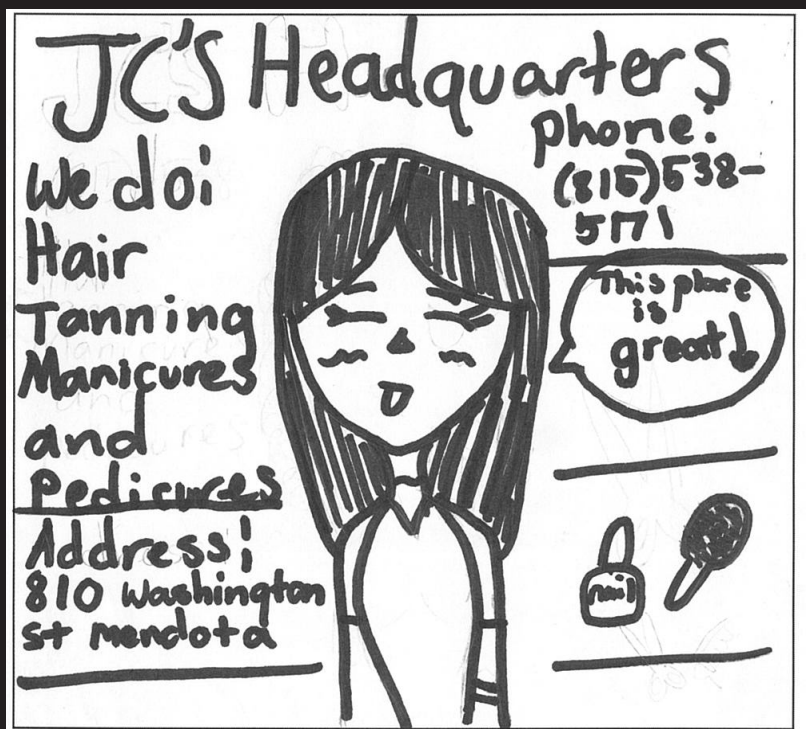 JC'S Headquarters
We do:
Hair
Tanning
Manicures
and
Pedicures
Address:
810 Washington
St Mendota
phone:
(815)538-
5171
This place
is
great!
nail